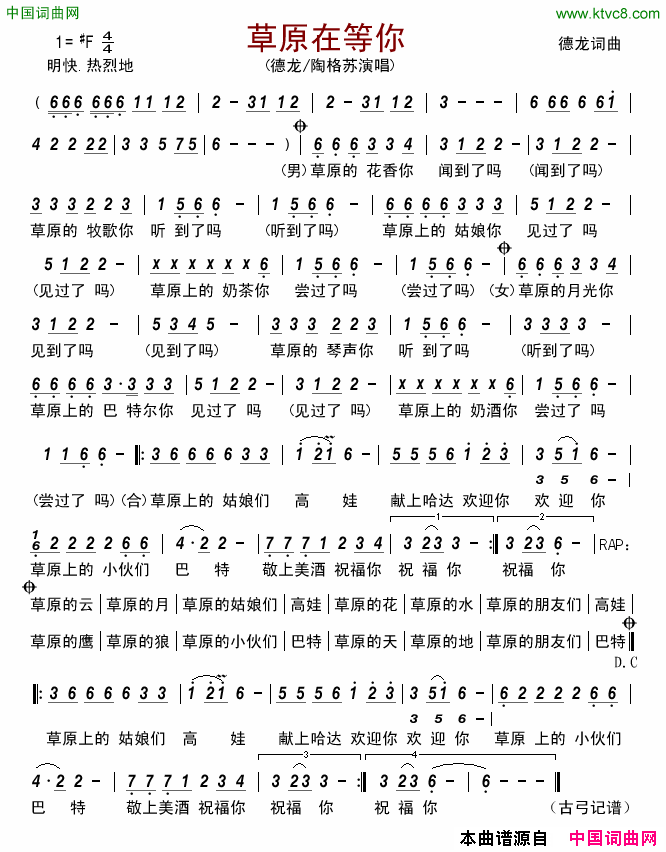 中国词曲网 www.ktvc8.com
草原在等你
1= #F 4/4 德龙词曲
明快.热烈地 (德龙/陶格苏演唱)
( 666 666 11 12 | 2 - 31 12 | 2 - 31 12 | 3 - - - | 6 66 6 61 |
4 2 2 22 | 3 3 5 75 | 6 - - - ) | 6 6 6 3 3 4 | 3 1 2 2 - | 3 1 2 2 - |
(男)草原的 花香你 闻到了吗 (闻到了吗)
3 3 3 2 2 3 | 1 5 6 6 - | 1 5 6 6 - | 6 6 6 6 3 3 3 | 5 1 2 2 - |
草原的 牧歌你 听 到了吗 (听到了吗) 草原上的 姑娘你 见过了 吗
5 1 2 2 - | x x x x x x 6 | 1 5 6 6 - | 1 5 6 6 - | 6 6 6 3 3 4 |
(见过了 吗) 草原上的 奶茶你 尝过了吗 (尝过了吗) (女)草原的月光你
3 1 2 2 - | 5 3 4 5 - | 3 3 3 2 2 3 | 1 5 6 6 - | 3 3 3 3 - |
见到了吗 (见到了吗) 草原的 琴声你 听 到了吗 (听到了吗)
6 6 6 6 3·3 3 3 | 5 1 2 2 - | 3 1 2 2 - | x x x x x x 6 | 1 5 6 6 - |
草原上的 巴 特尔你 见过了 吗 (见过了 吗) 草原上的 奶酒你 尝过了吗
1 1 6 6 - |: 3 6 6 6 6 3 3 | 1 2 1 6 - | 5 5 5 6 1 2 | 3 5 1 6 - |
3 5 6 -
(尝过了 吗)(合)草原上的 姑娘们 高 娃 献上哈达 欢迎你 欢 迎 你
1 2
1/6 2 2 2 2 6 6 | 4·2 2 - | 7 7 7 1 2 3 4 | 3 2 3 3 - :| 3 2 3 6 - | RAP:
草原上的 小伙们 巴 特 敬上美酒 祝福你 祝 福 你 祝福 你
草原的云|草原的月|草原的姑娘们|高娃|草原的花|草原的水|草原的朋友们|高娃|
草原的鹰|草原的狼|草原的小伙们|巴特|草原的天|草原的地|草原的朋友们|巴特‖
D.C
|: 3 6 6 6 6 3 3 | 1 2 1 6 - | 5 5 5 6 1 2 3 | 3 5 1 6 - | 6 2 2 2 2 6 6 |
3 5 6 -
草原上的 姑娘们 高 娃 献上哈达 欢迎你 欢 迎 你 草原 上的 小伙们
3 4
4·2 2 - | 7 7 7 1 2 3 4 | 3 2 3 3 - :| 3 2 3 6 - | 6 - - - ‖
巴 特 敬上美酒 祝福你 祝福 你 祝 福 你 (古弓记谱)
本曲谱源自 中国词曲网